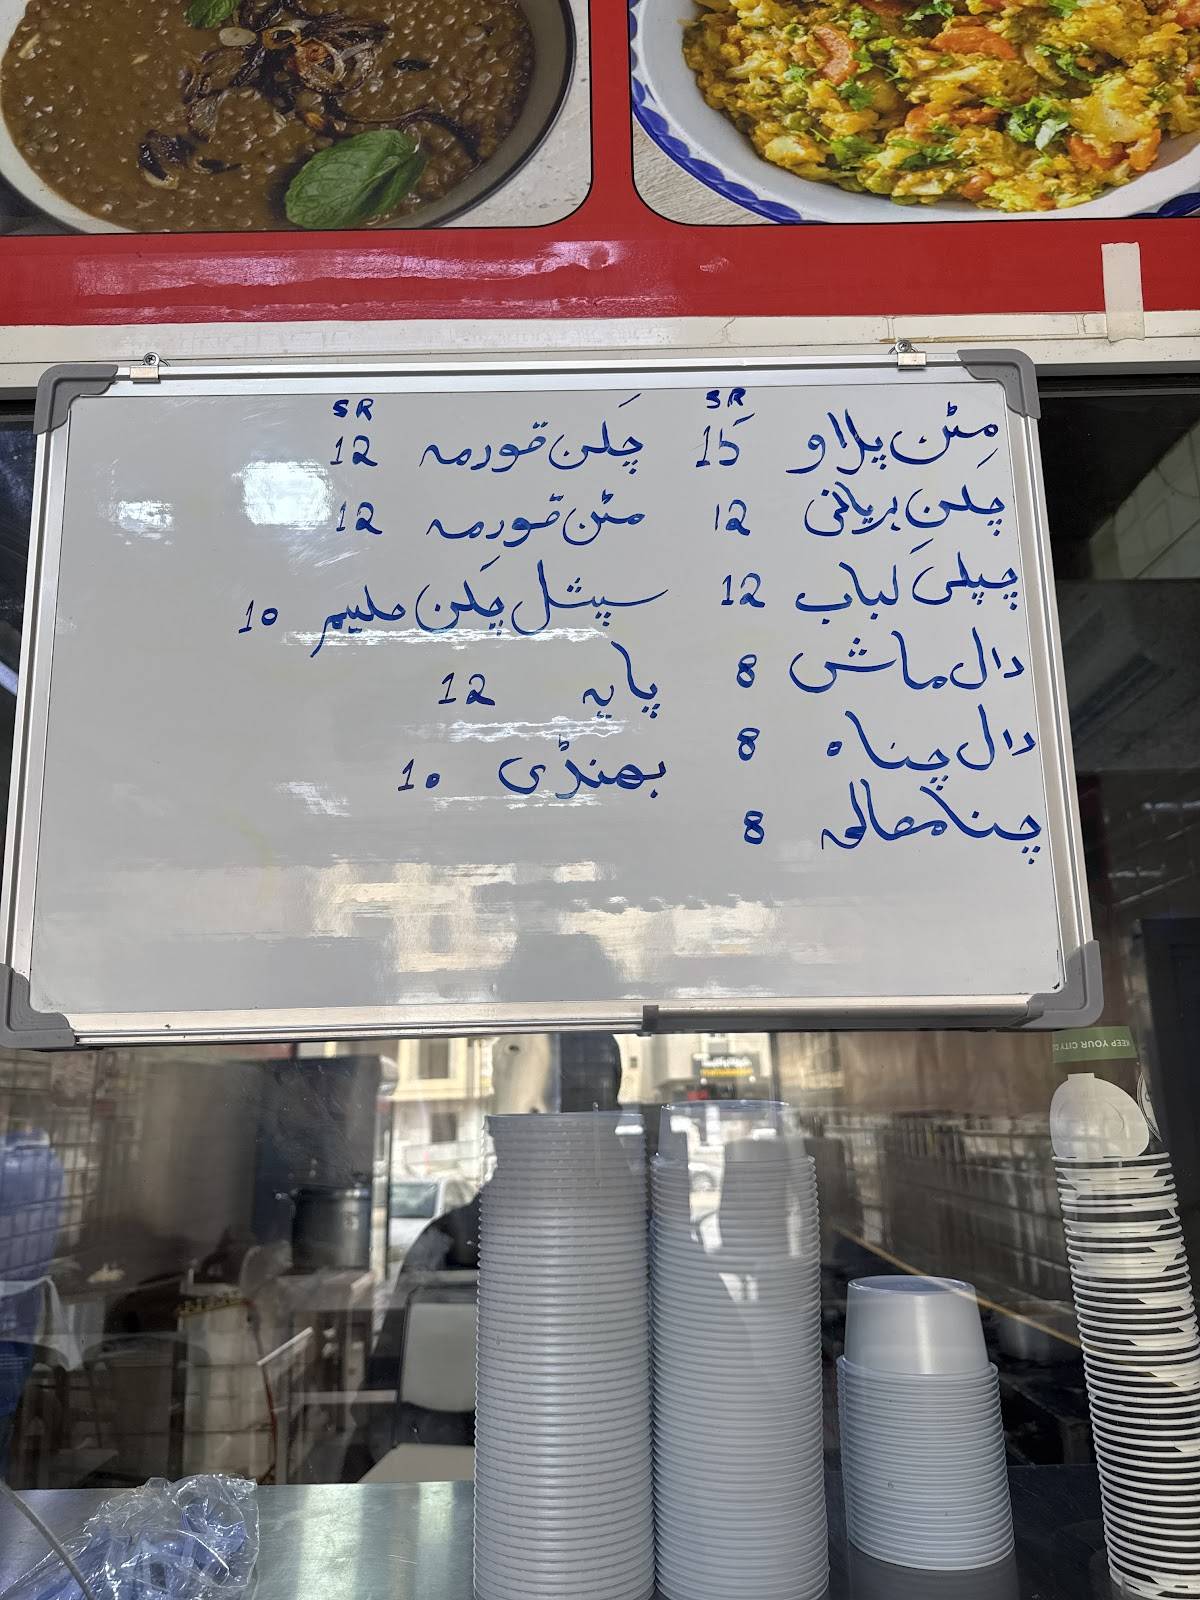 SR
مِٹن پلاؤ 15
چکن بریانی 12
چپلی کباب 12
دال ماش 8
دال چناہ 8
چنا مصالحہ 8
SR
چکن قورمہ 12
مٹن قورمہ 12
سپیشل چکن حلیم 10
پایہ 12
بھنڈی 10
KEEP YOUR CITY